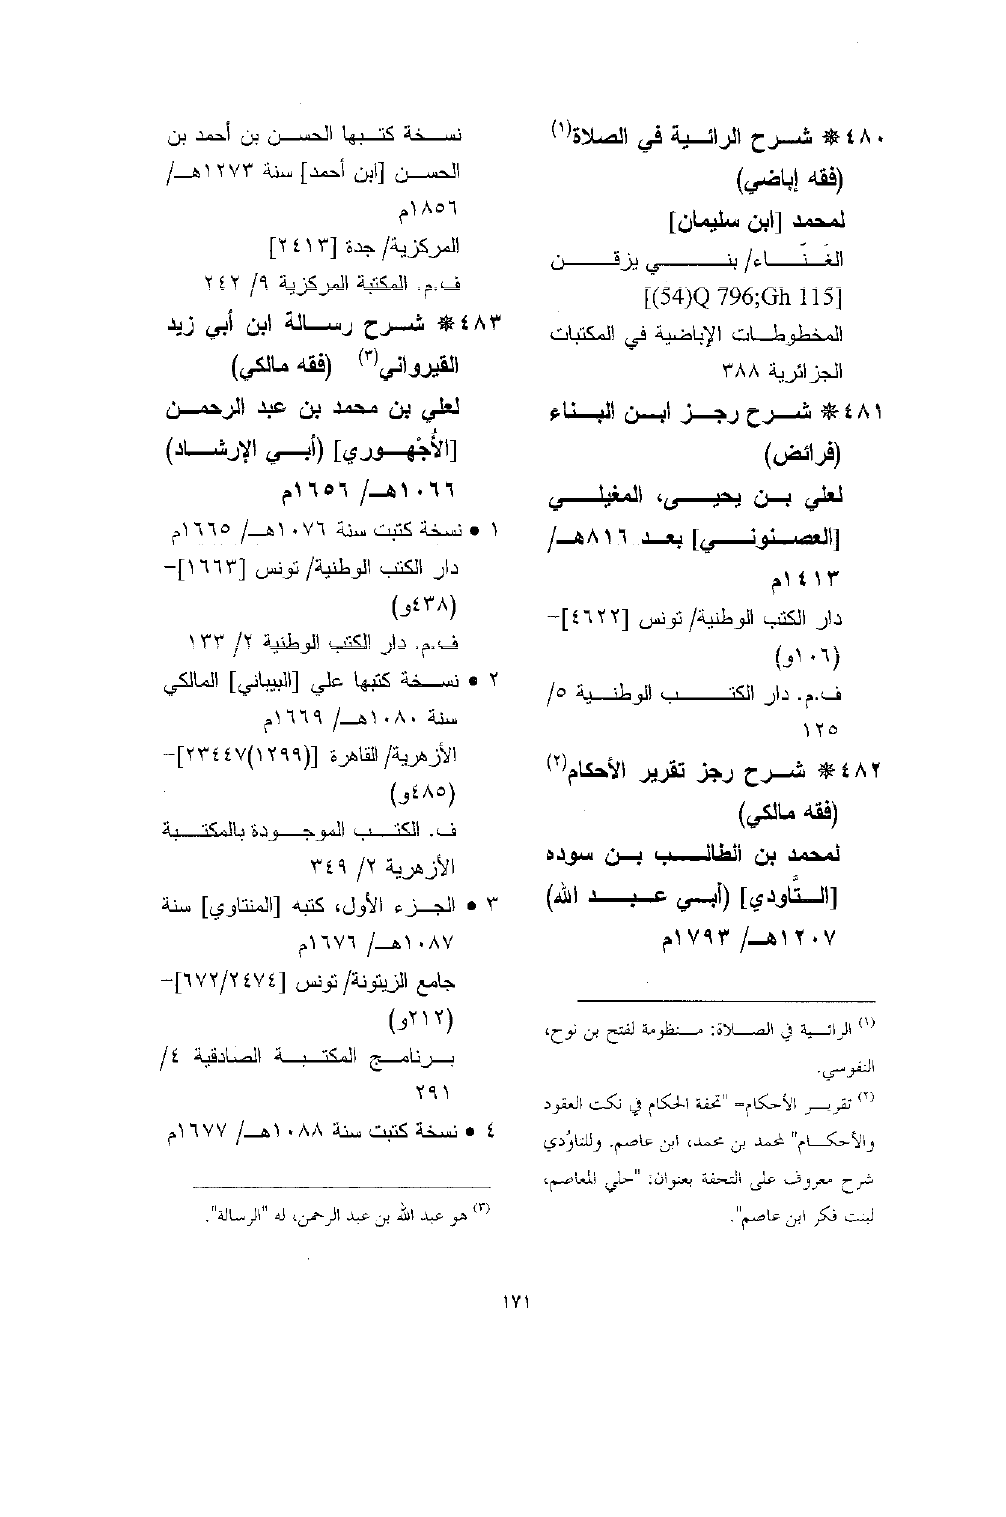 ٤٨٠ * شرح الرائية في الصلاة(١)
(فقه إباضي)
لمحمد [ابن سليمان]
الغنَّاء/ بني يزقن
[(54)Q 796;Gh 115]
المخطوطات الإباضية في المكتبات
الجزائرية ٣٨٨
٤٨١ * شرح رجز ابن البناء
(فرائض)
لعلي بن يحيى، المغيلي
[العصنوني] بعد ٨١٦هـ/
١٤١٣م
دار الكتب الوطنية/ تونس [٤٦٢٢]-
(١٠٦و)
ف.م. دار الكتب الوطنية ٥/
١٢٥
٤٨٢ * شرح رجز تقرير الأحكام(٢)
(فقه مالكي)
لمحمد بن الطالب بن سوده
[التَّاودي] (أبي عبد الله)
١٢٠٧هـ/ ١٧٩٣م
(١) الرائية في الصلاة: منظومة لفتح بن نوح،
النفوسي.
(٢) تقرير الأحكام= "تحفة الحكام في نكت العقود
والأحكام" لمحمد بن محمد، ابن عاصم. وللتاوُدي
شرح معروف على التحفة بعنوان: "حلي المعاصم،
لبنت فكر ابن عاصم".
نسخة كتبها الحسن بن أحمد بن
الحسن [ابن أحمد] سنة ١٢٧٣هـ/
١٨٥٦م
المركزية/ جدة [٢٤١٣]
ف.م. المكتبة المركزية ٩/ ٢٤٢
٤٨٣ * شرح رسالة ابن أبي زيد
القيرواني(٣) (فقه مالكي)
لعلي بن محمد بن عبد الرحمن
[الأُجْهوري] (أبي الإرشاد)
١٠٦٦هـ/ ١٦٥٦م
١ • نسخة كتبت سنة ١٠٧٦هـ/ ١٦٦٥م
دار الكتب الوطنية/ تونس [١٦٦٣]-
(٤٣٨و)
ف.م. دار الكتب الوطنية ٢/ ١٣٣
٢ • نسخة كتبها علي [البيباني] المالكي
سنة ١٠٨٠هـ/ ١٦٦٩م
الأزهرية/ القاهرة [(١٢٩٩)٢٣٤٤٧]-
(٤٨٥و)
ف. الكتب الموجودة بالمكتبة
الأزهرية ٢/ ٣٤٩
٣ • الجزء الأول، كتبه [المنتاوي] سنة
١٠٨٧هـ/ ١٦٧٦م
جامع الزيتونة/ تونس [٦٧٢/٢٤٧٤]-
(٢١٢و)
برنامج المكتبة الصادقية ٤/
٢٩١
٤ • نسخة كتبت سنة ١٠٨٨هـ/ ١٦٧٧م
(٣) هو عبد الله بن عبد الرحمن، له "الرسالة".
١٧١